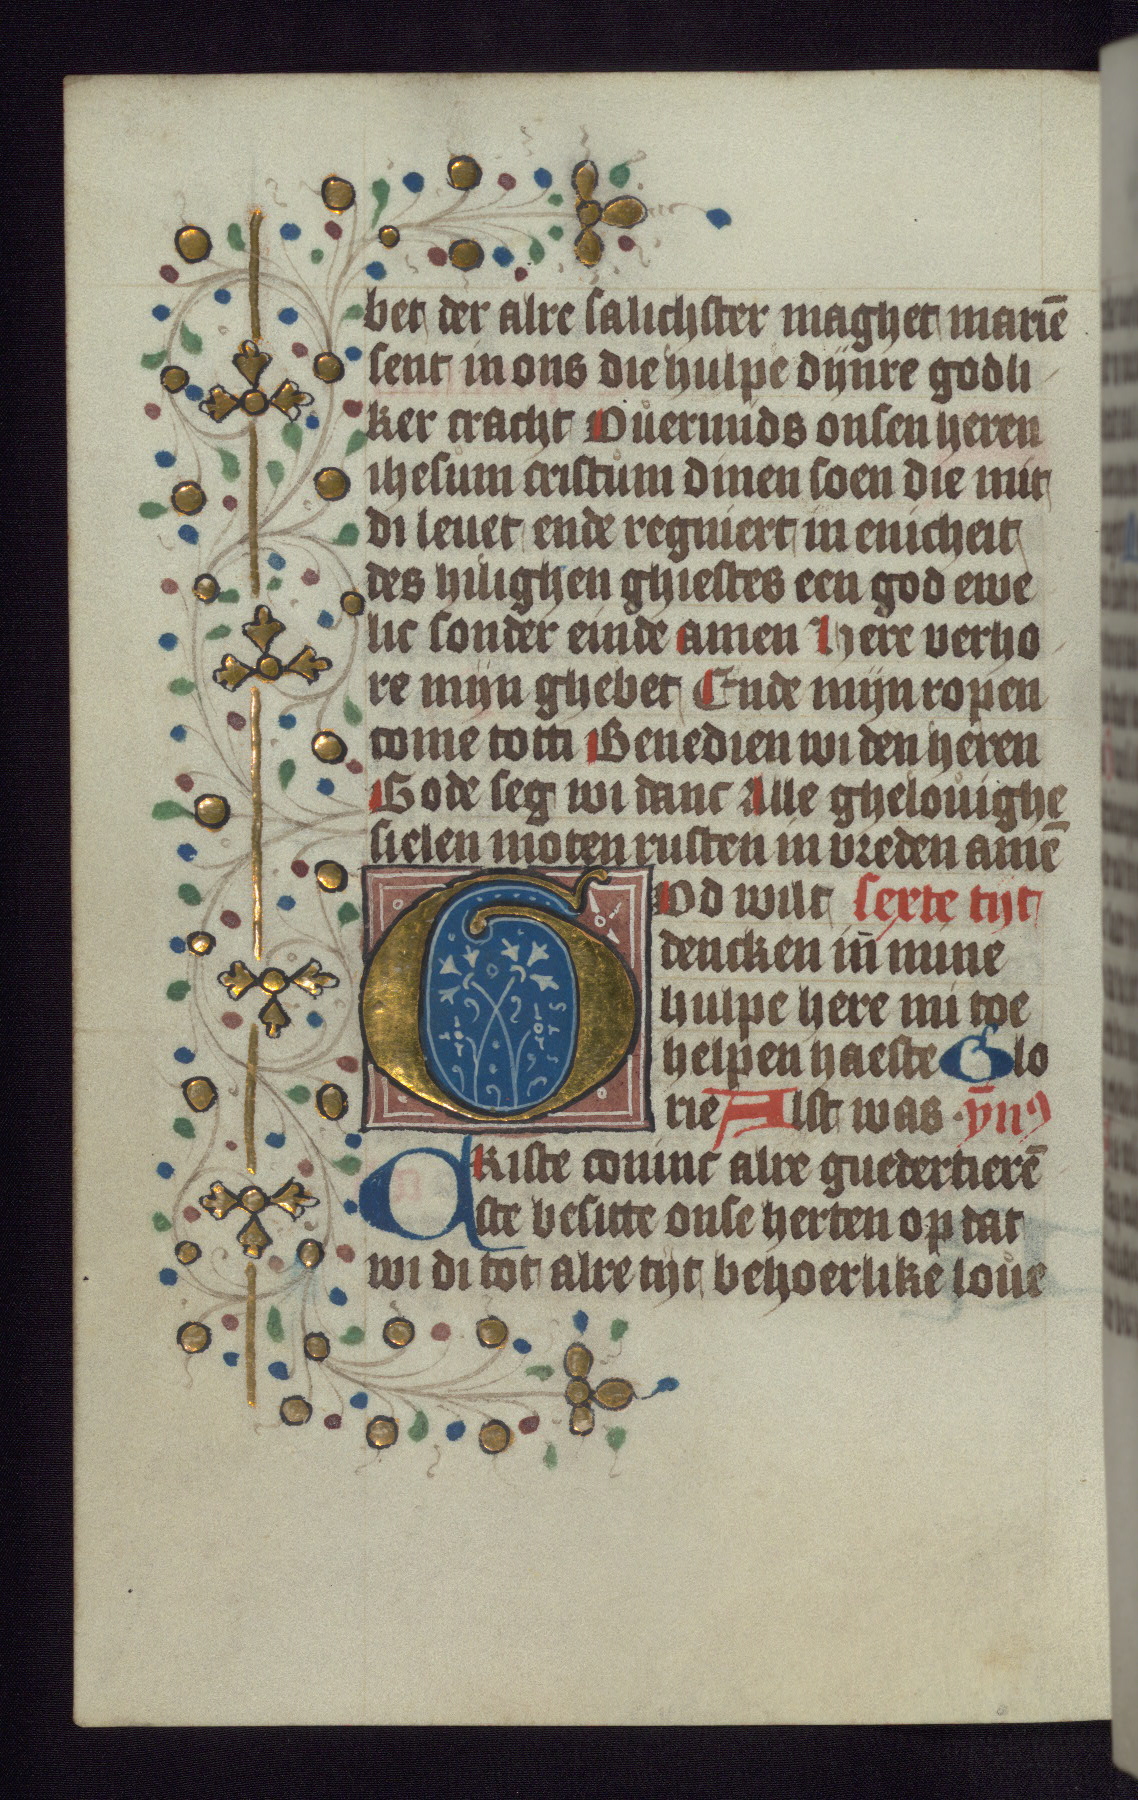 bet der alre salichster maghet mariē
sent in ons die hulpe dijnre godli
ker cracht Ouermids onsen heren
ihesum cristum dinen soen die mit
di leuet ende regniert in enicheit
des hilighen ghiestes een god ewe
lic sonder einde amen Here verho
re mijn ghebet Ende mijn ropen
come totti Benedien wi den heren
Gode seg wi danc Alle ghelouighe
sielen moten rusten in vreden amē
GOd wilt sexte tijt
dencken in̄ mine
hulpe here mi toe
helpen haeste Glo
rie Alst was ẏmꝰ
Kiste coninc alre guedertierē
ste besitte onse herten op dat
wi di tot alre tijt behoerlike loue